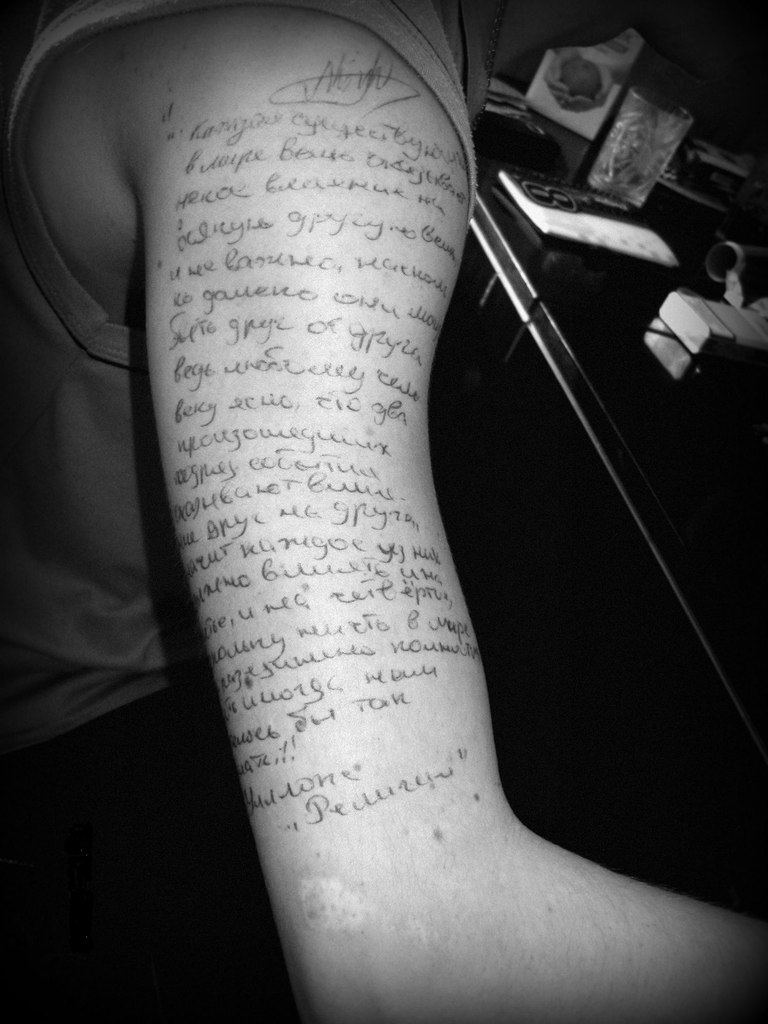 "Каждая существующая
в мире вещь оказывает
некое влияние на
всякую другую вещь
и не важно, насколь
ко далеко они могут
быть друг от друга
ведь любому чело
веку ясно, что два
произошедших
подряд события
оказывают влия-
ние друг на друга,
значит каждое из них
должно влиять и на
третье, и на четвёртое,
поскольку ничто в мире
не
иногда нам
бы так
!!!
Уиллоне
„Религия"